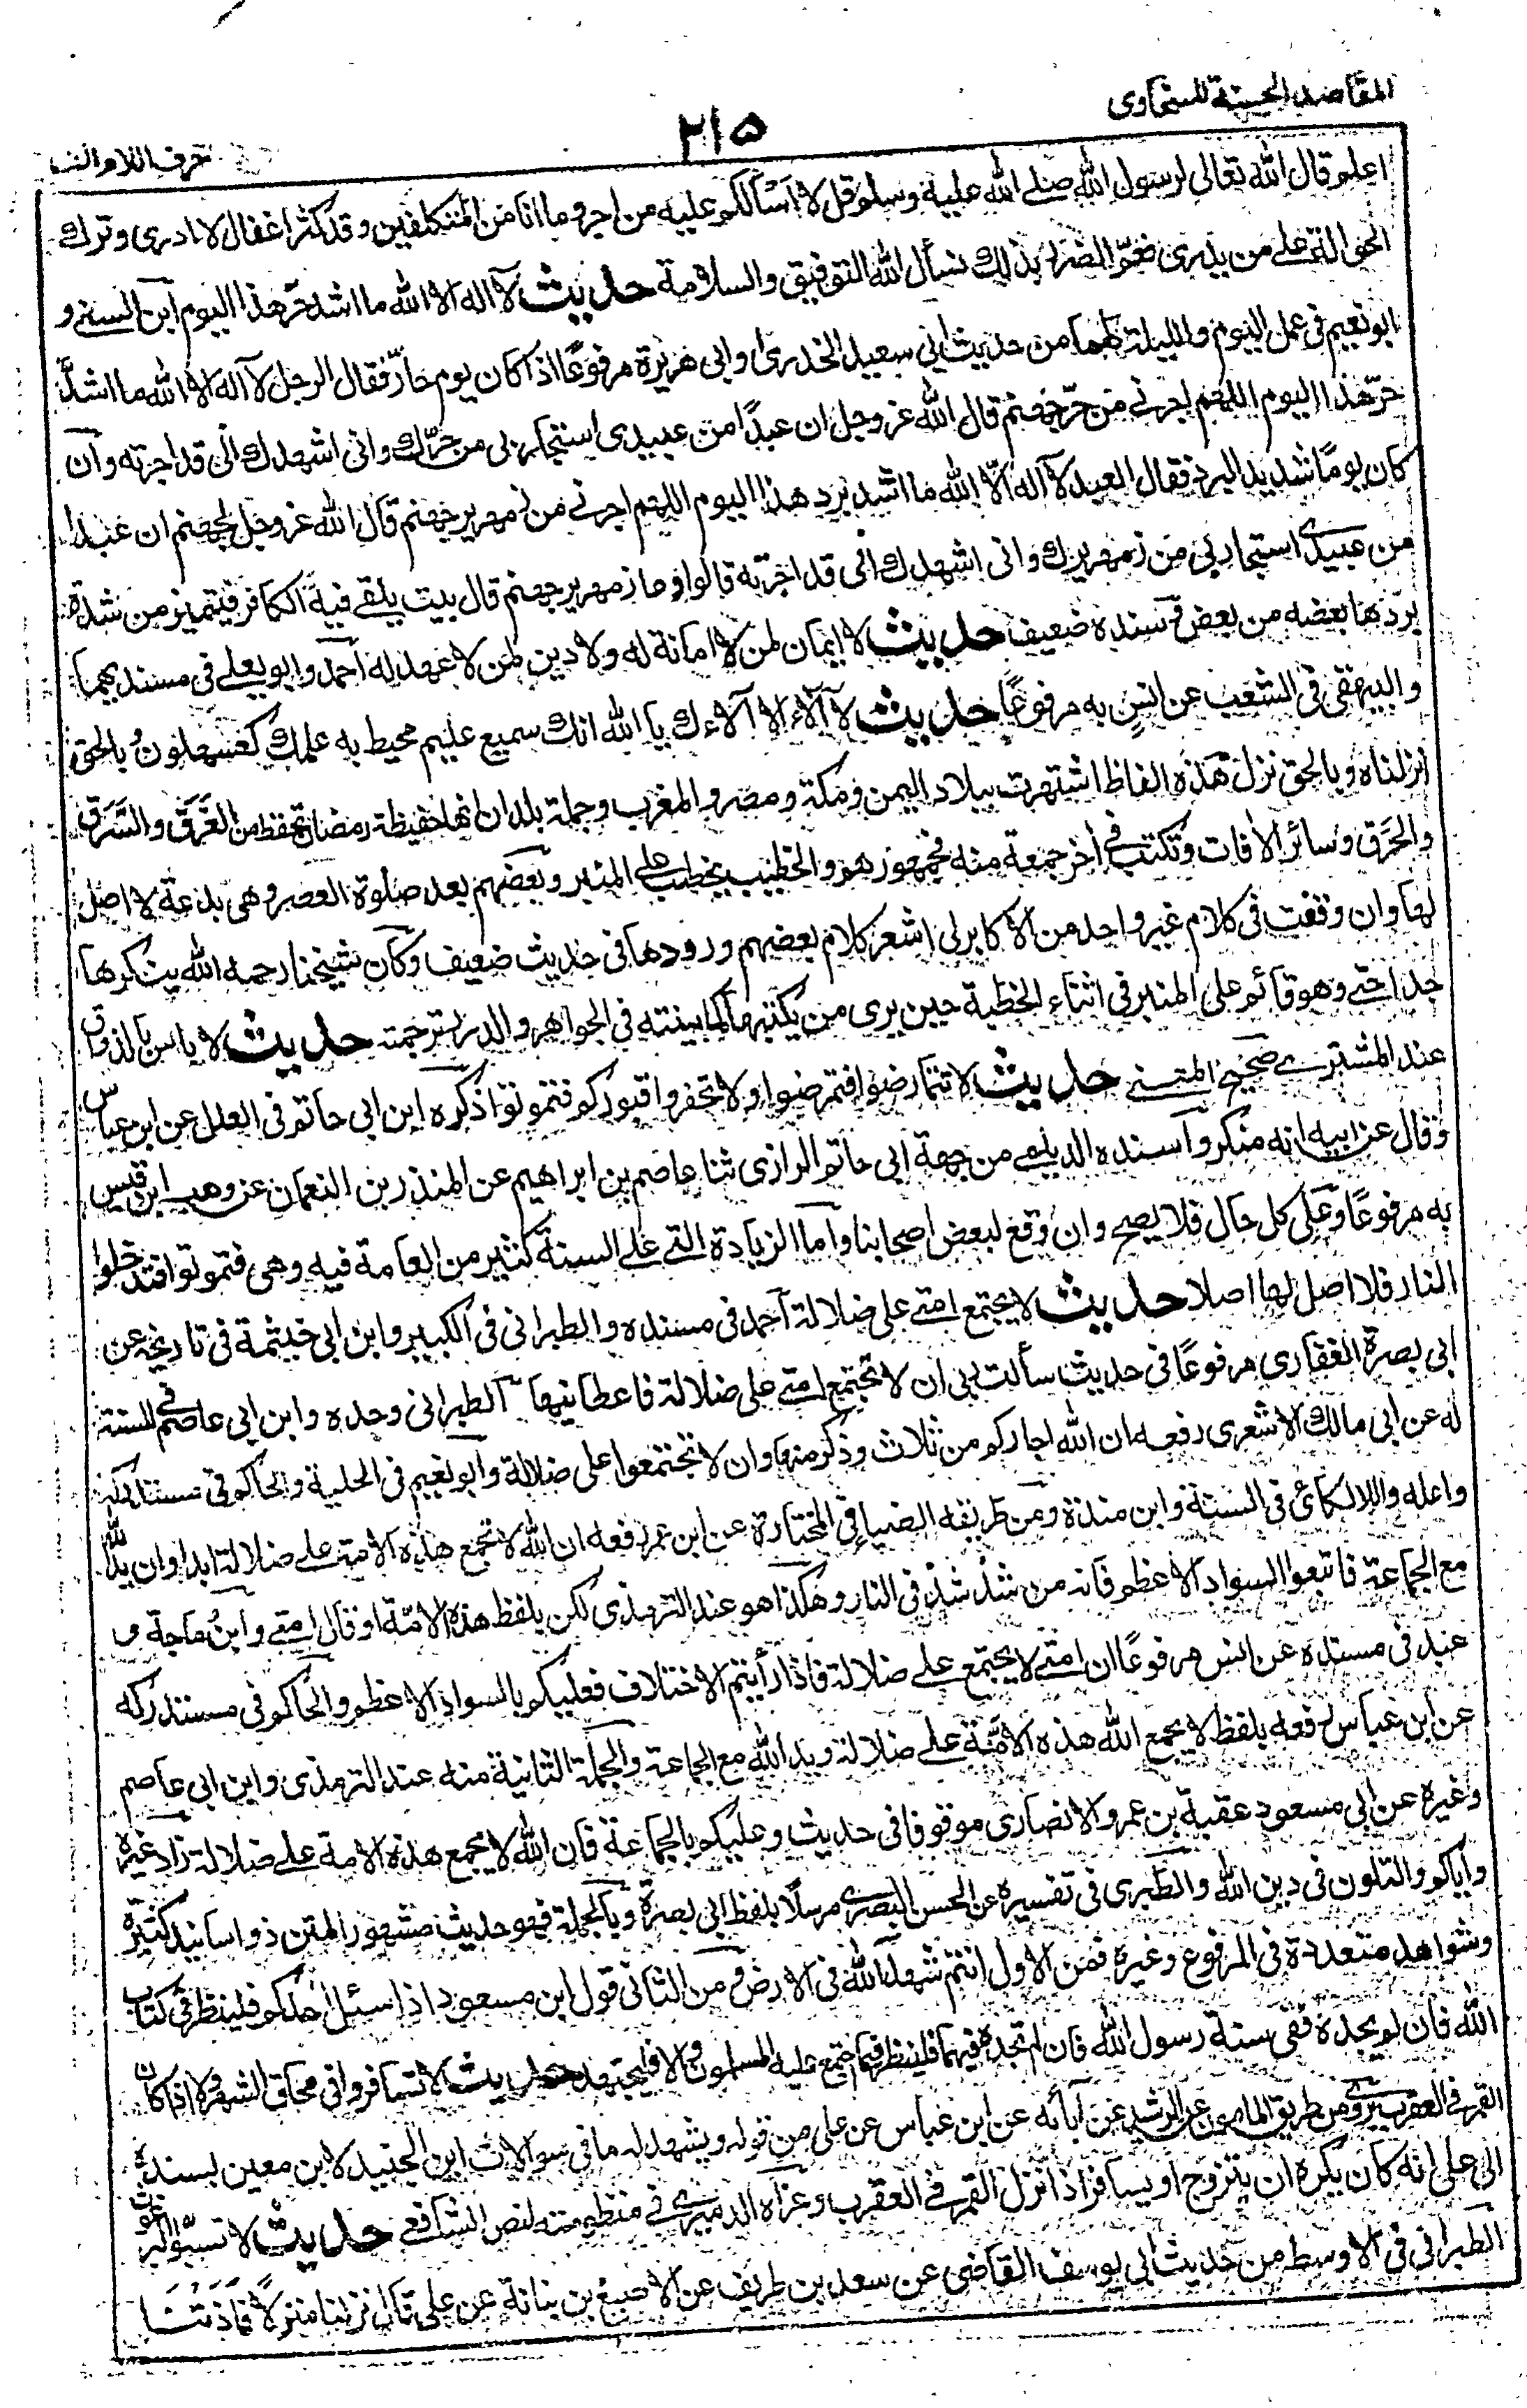 المقاصد الحسنة للسخاوى
٢١٥
حرف اللام الف
اعلم قال الله تعالى لرسول الله صلے الله عليه وسلم قل لا اسْألكم عليه من اجر وما انا من المتكلفين وقد كثر اغفال لا ادرى وترك
الحوالة على من يدرى فعمّ الضرر بذلك نسأل الله التوفيق والسلامة حديث لا اله الا الله ما اشد حرّ هذا اليوم ابن السنے و
ابو نعيم فى عمل اليوم والليلة لهما من حديث ابى سعيد الخدرى وابى هريرة مرفوعًا اذا كان يوم حارّ فقال الرجل لا اله الا الله ما اشدّ
حرّ هذا اليوم اللهم اجرنے من حرّ جهنم قال الله عز وجل ان عبدًا من عبيدى استجار بى من حرّك وانى اشهدك انى قد اجرته وان
كان يومًا شديد البرد فقال العبد لا اله الّا الله ما اشد برد هذا اليوم اللهم اجرنے من زمهرير جهنم قال الله عز وجل لجهنم ان عبدا
من عبيدى استجار بى من زمهريرك وانى اشهدك انى قد اجرته قالوا وما زمهرير جهنم قال بيت يلقے فيه الكافر فيتميز من شدة
بردها بعضه من بعض وسنده ضعيف حديث لا ايمان لمن لا امانة له ولا دين لمن لا عهد له احمد وابو يعلے فى مسنديهما
والبيهقى فى الشعب عن انس به مرفوعًا حديث لا آلاء الا آلاءك يا الله انك سميع عليم محيط به علمك كعسهلون وبالحق
انزلناه وبالحق نزل هذه الفاظ اشتهرت ببلاد اليمن ومكة ومصر والمغرب وجملة بلدان انها حفيظة رمضان تحفظ من الغَرَق والسَّرَق
والحَرَق وسائر الافات وتكتب فى اخر جمعة منه فجمهورهم والخطيب يخطب على المنبر وبعضهم بعد صلوة العصر وهى بدعة لا اصل
لها وان وقعت فى كلام غير واحد من الاكابر بل اشعر كلام بعضهم ورودها فى حديث ضعيف وكان شيخنا رحمه الله ينكرها
جدا حتے وهو قائم على المنبر فى اثناء الخطبة حين يرى من يكتبها كما بينته فى الجواهر والدرر بترجمته حديث لا باس بالذواق
عند المشترے صحيح المعنے حديث لا تتمارضوا فتمرضوا ولا تحفروا قبوركم فتموتوا ذكره ابن ابى حاتم فى العلل عن ابن عباس
وقال عن ابيه انه منكر واسنده الديلمے من جهة ابى حاتم الرازى ثنا عاصم بن ابراهيم عن المنذر بن النعمان عن وهب ابن قيس
به مرفوعًا وعلى كل حال فلا يصح وان وقع لبعض اصحابنا واما الزيادة التى على السنة كثير من العامة فيه وهى فتموتوا فتدخلوا
النار فلا اصل لها اصلا حديث لا يجتمع امتے على ضلالة احمد فى مسنده والطبرانى فى الكبير وابن ابى خيثمة فى تاريخه عن
ابى بصرة الغفارى مرفوعًا فى حديث سألت ربى ان لا تجتمع امتے على ضلالة فاعطانيها الطبرانى وحده وابن ابى عاصم فى السنة
له عن ابى مالك الاشعرى رفعه ان الله اجاركم من ثلاث وذكر منها وان لا تجتمعوا على ضلالة وابو نعيم فى الحلية والحاكم فى مستدركه
واعله واللالكائى فى السنة وابن مندة ومن طريقه الضياء فى المختارة عن ابن عمر رفعه ان الله لا يجمع هذه الامة على ضلالة ابدا وان يد الله
مع الجماعة فاتبعوا السواد الاعظم فانه من شذ شذ فى النار وهكذا هو عند الترمذى لكن بلفظ هذه الامّة او قال امتے وابن ماجة و
عبد فى مسنده عن انس مرفوعًا ان امتے لا يجتمع على ضلالة فاذا رأيتم الاختلاف فعليكم بالسواد الاعظم والحاكم فى مستدركه
عن ابن عباس رفعه بلفظ لا يجمع الله هذه الامّة على ضلالة ويد الله مع الجماعة والجملة الثانية منه عند الترمذى وابن ابى عاصم
وغيره عن ابى مسعود عقبة بن عمرو الانصارى موقوفا فى حديث وعليكم بالجماعة فان الله لا يجمع هذه الامة على ضلالة زاد غيره
واياكم والتلون فى دين الله والطبرى فى تفسيره عن الحسن البصرے مرسلًا بلفظ ابى بصرة وبالجملة فهو حديث مشهور المتن ذو اسانيد كثيرة
وشواهد متعددة فى المرفوع وغيره فمن الاول انتم شهداء الله فى الارض ومن الثانى قول ابن مسعود اذا سئل احدكم فلينظر فى كتاب
الله فان لم يجده ففى سنة رسول الله فان لم يجده فيهما فلينظر فيما اجتمع عليه المسلمون والا فليجتهد حديث لا تسافروا فى محاق الشهر ولا اذا كان
القمر فى العقرب يروى من طريق المامون عن الرشيد عن آبائه عن ابن عباس عن على من قوله ويشهد له ما فى سوالات ابن الجنيد لابن معين بسنده
الى على انه كان يكره ان يتزوج او يسافر اذا نزل القمر فى العقرب وعزاه الدميرى فى منظومته لنص الشافعے حديث لا تسبّوا البرغوث
الطبرانى فى الاوسط من حديث ابى يوسف القاضى عن سعد بن طريف عن الاصبغ بن نباتة عن على قال نزلنا منزلًا فاذتنا